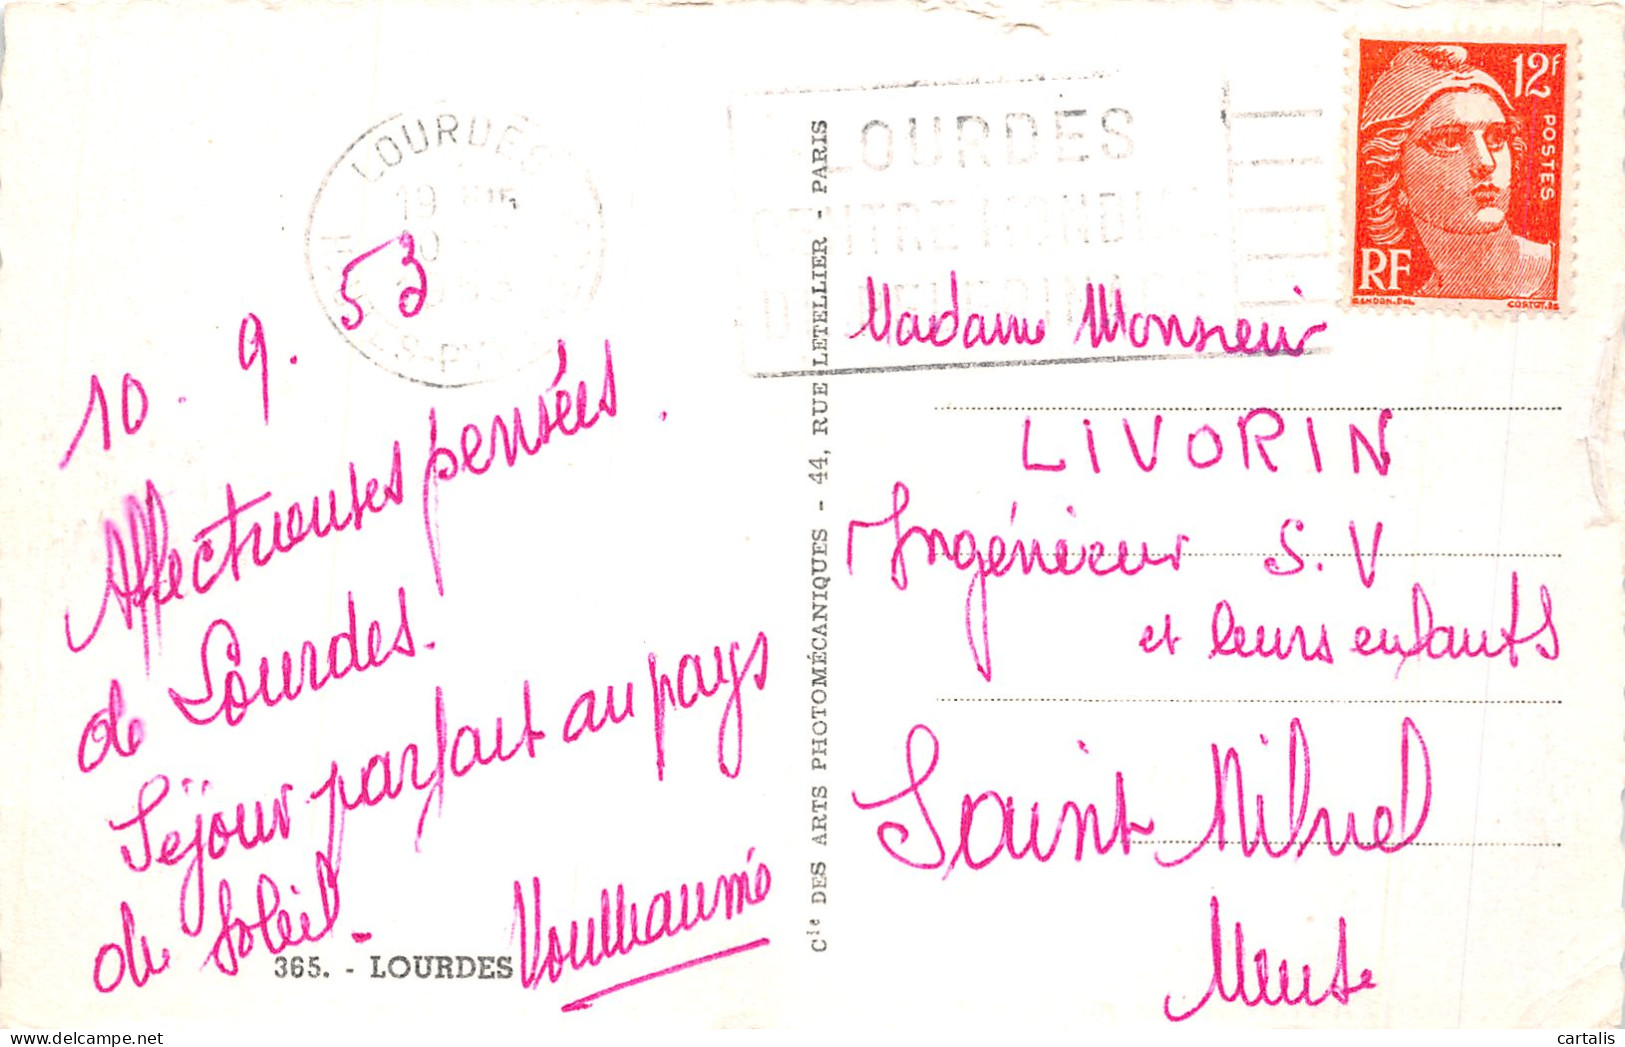 LOURDES
19
LOURDES
CENTRE MONDIAL
12F
POSTES
RF
10. 9. 53
Affectueuses pensées.
de Lourdes.
Séjour parfait au pays
de soleil.
365. - LOURDES
Cie DES ARTS PHOTOMÉCANIQUES - 44, RUE LETELLIER - PARIS
Madame Monsieur
LIVORIN
Ingénieur S.V
et leurs enfants
Saint Mihiel
Meuse
cartalis